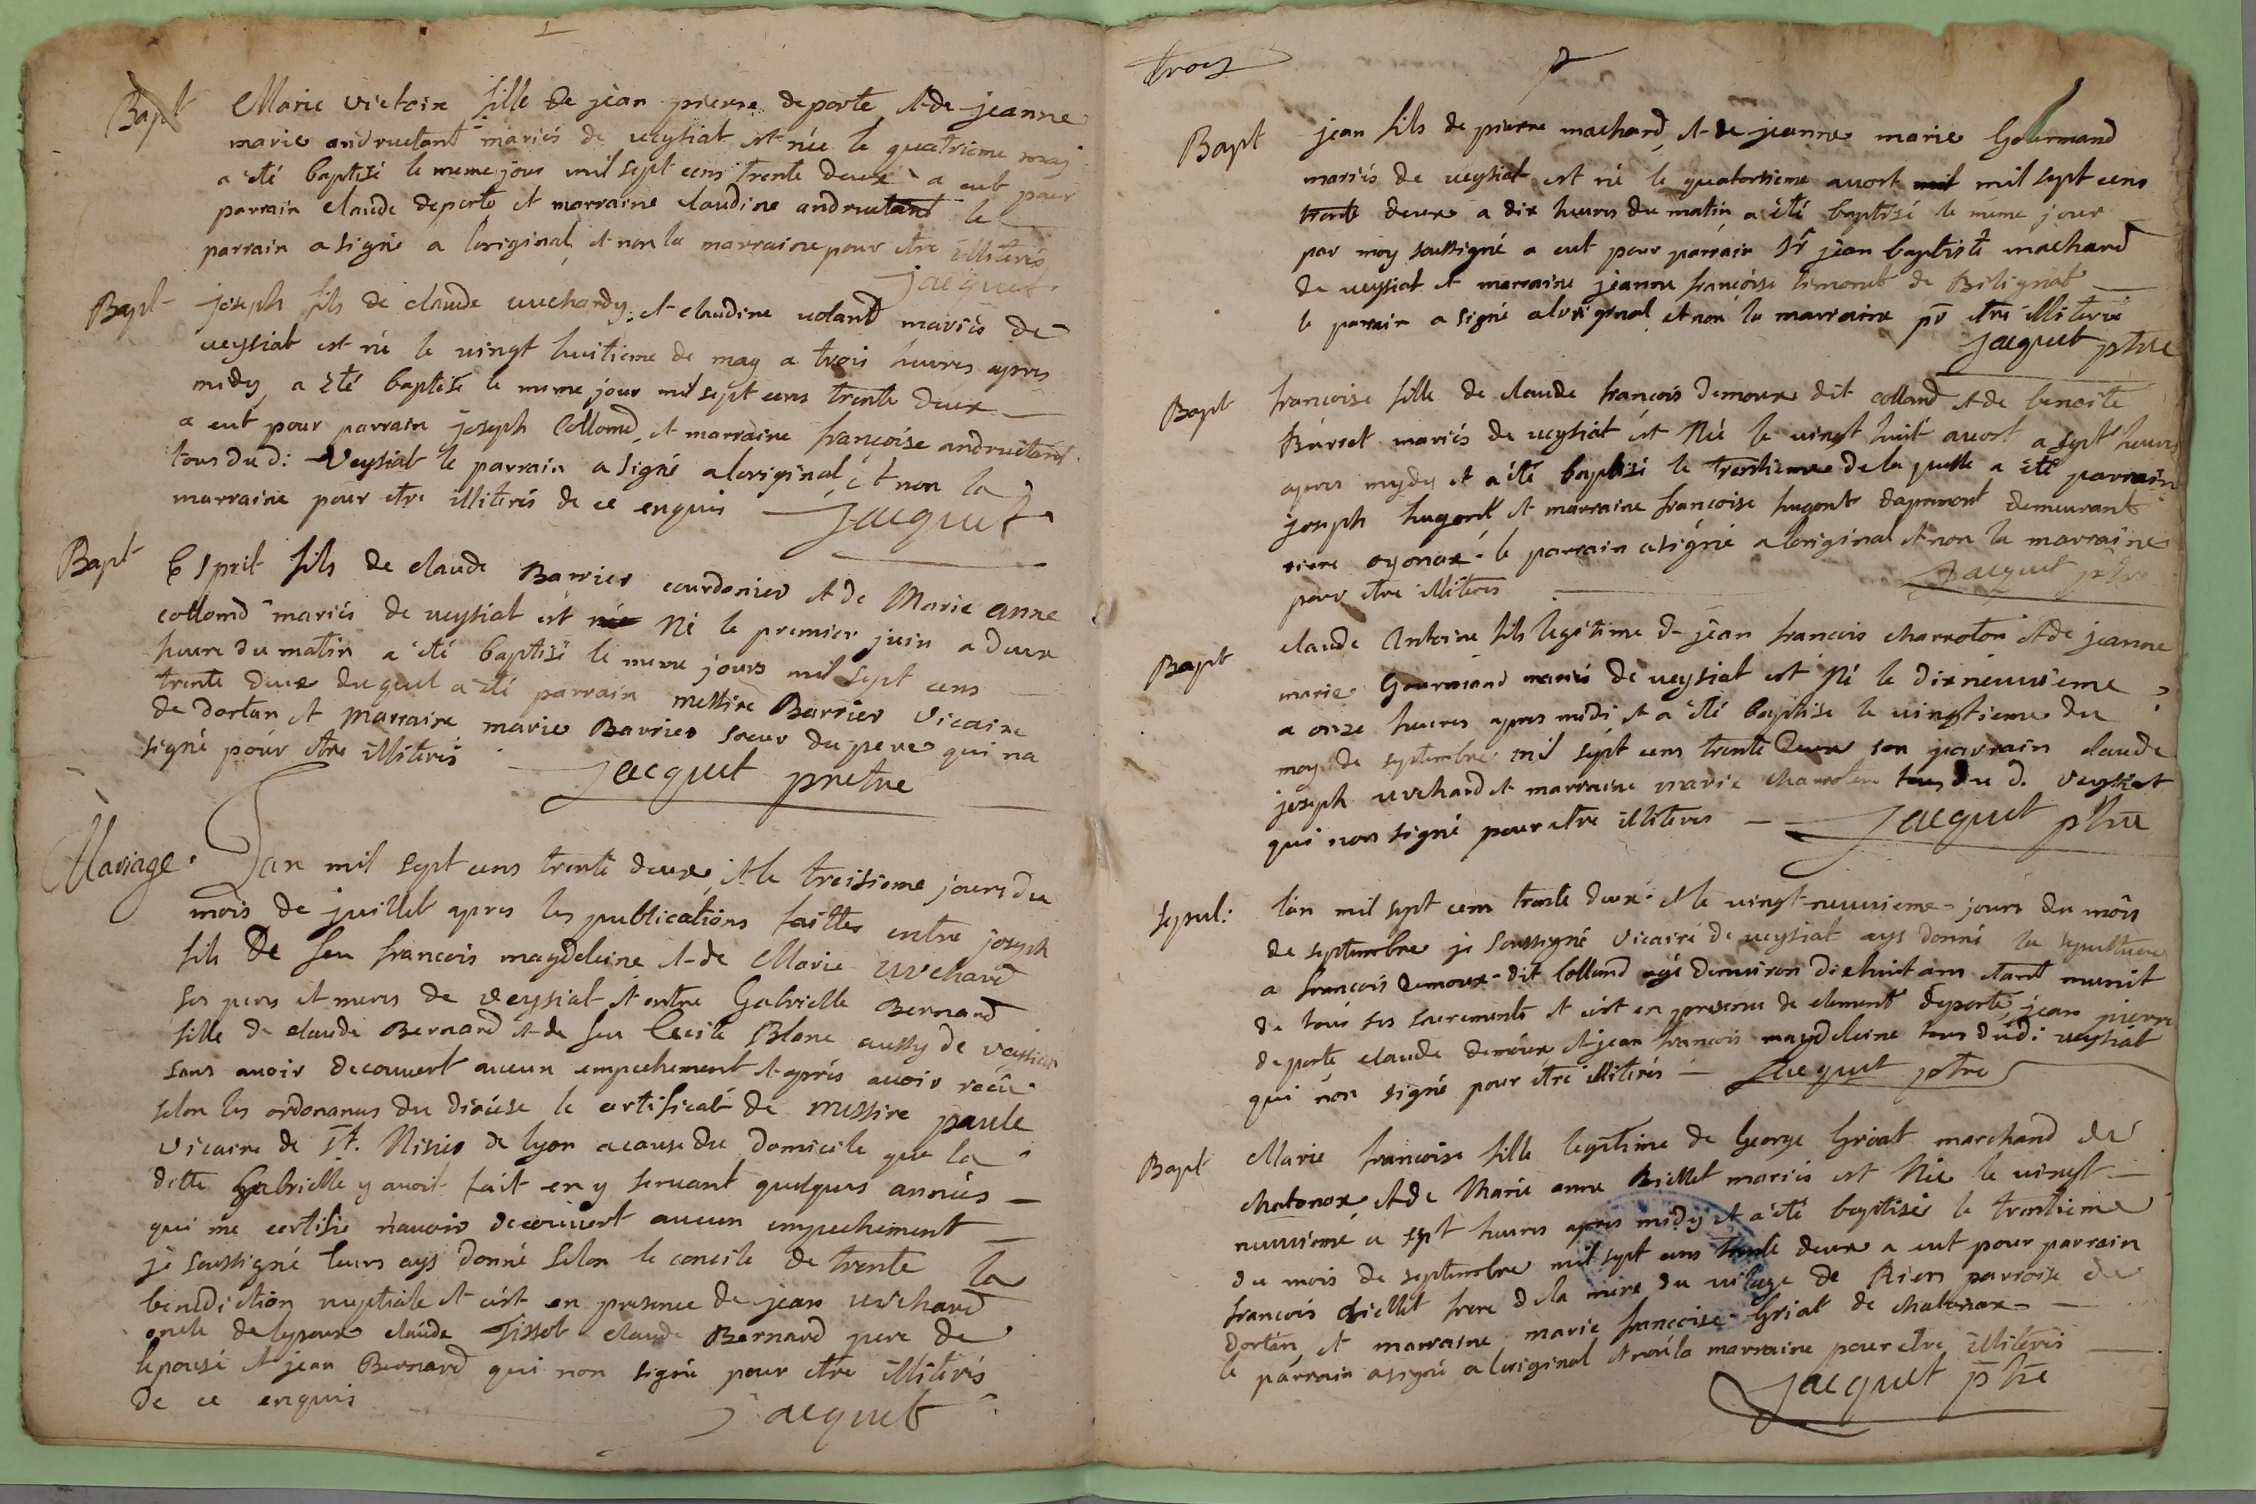 Bapt Marie victoire fille de jean pierre deporte et de jeanne
marie andruetant mariés de veysiat est née le quatrieme may
a été baptisé le meme jour mil sept cens trente deux a eut pour
parrain claude deporte et marraine claudine andruetant le
parrain a signé a loriginal et non la marraine pour etre illiteréé
jacquet
Bapt joseph fils de claude uuchardy et claudine voland mariés de
veysiat est né le vingt huitieme de may a trois heures apres
midy, a été baptisé le meme jour mil sept cens trente deux
a eut pour parrain joseph Collomd et marraine françoise andruetant
tous du d: Veysiat le parrain a signé a loriginal et non la
marraine pour etre illiterés de ce enquis jacquet
Bapt Esprit fils de claude Barrier courdonier et de Marie anne
collomd mariés de veysiat est né Né le premier juin a deux
heure du matin a été baptisé le meme jours mil sept cens
trente deux duquel a été parrain messire Barrier Vicaire
de dortan et Marraine marie Barrier soeur du pere qui na
signé pour etre illiterés jacquet pretre
Mariage. Lan mil sept cens trente deux et le treisieme jours du
mois de juillet apres les publications faittes entre joseph
fils De feu francois magdeleine et de Marie uvchard
ses pere et meres de veysiat et entre Gabrielle Bernard
fille de claude Bernard et de feu Cecile Blanc aussy de veysiat
sans avoir decouvert aucun empechement et aprés avoir recû
selon les ordonances du diocese le certificat de messire paule
vicaire de St. Nisier de lyon a cause du domicile que la
ditte Gabrielle y avoit fait en y servant quelques annéés
qui me certifie n'avoir decouvert aucun empechement
je soussigné leurs ays donné selon le concile de trente la
benediction nuptiale et cést en presence de jean uvchard
oncle de lepoux claude Tissot claude Bernard pere de
lepousé et jean Bernard qui non signé pour etre illiterés
de ce enquis jacquet
trois
Bapt jean fils de pierre machard, et de jeanne marie Gourmand
mariés de veysiat est né le quatorsieme avost mil sept cens
trente deux a dix heures du matin a été baptisé le meme jour
par moy soussigné a eut pour parrain Sr jean baptiste machard
de veysiat et marraine jeanne françoise timonet de Bélignat
le parrain a signé a loriginal et non la marraine pr etre illiteréé
jacquet ptre
Bapt francoise fille de claude francois demoux dit colland et de benoite
Burset mariés de veysiat est Née le vingt huit avost a sept heures
apres mydy et a été baptisé le trentieme de la quelle a été parrain
joseph hugont et marraine francoise hugont dapremont demeurant
riere oyonax. le parrain a signé a loriginal et non la marraine
pour etre illiteres jacquet ptre
Bapt claude Antoine fils legitime de jean francois charroton et de jeanne
marie Gourmand mariés de veysiat est Né le dixneuvieme
a onze heures apres midi et a été baptise le vingtieme du
moy de septembre mil sept cens trente deux son parrain claude
joseph uvchard et marraine marie charroton tous du d. veysiat
qui non signé pour etre illiteres jacquet ptre
Sepul: lan mil sept cens trente deux et le vingt-neuvieme jours du mois
de septembre je soussigné Vicaire de veysiat ays donné la sepulture
a francois demoux dit Colland agé denviron dixhuit ans etant munit
de tous ses sacrements et cést en presence de clement deporte, jean pierre
deporte claude demoux et jean francois magdeleine tous du di: veysiat
qui non signé pour etre illiterés jacquet ptre
Bapt Marie francoise fille legitime de George Griat marchand de
chatonax, et de Marie anne Biellet mariés est Née le vingt
neuvieme a sept heures apres midy et a été baptisée le trentieme
du mois de septembre mil sept cens trente deux a eut pour parrain
francois Biellet frere de la mere du village de Rien parroise de
dortan, et marraine marie francoise Griat de chatonax
le parrain a signé a loriginal et non la marraine pour etre illiterés
jacquet ptre